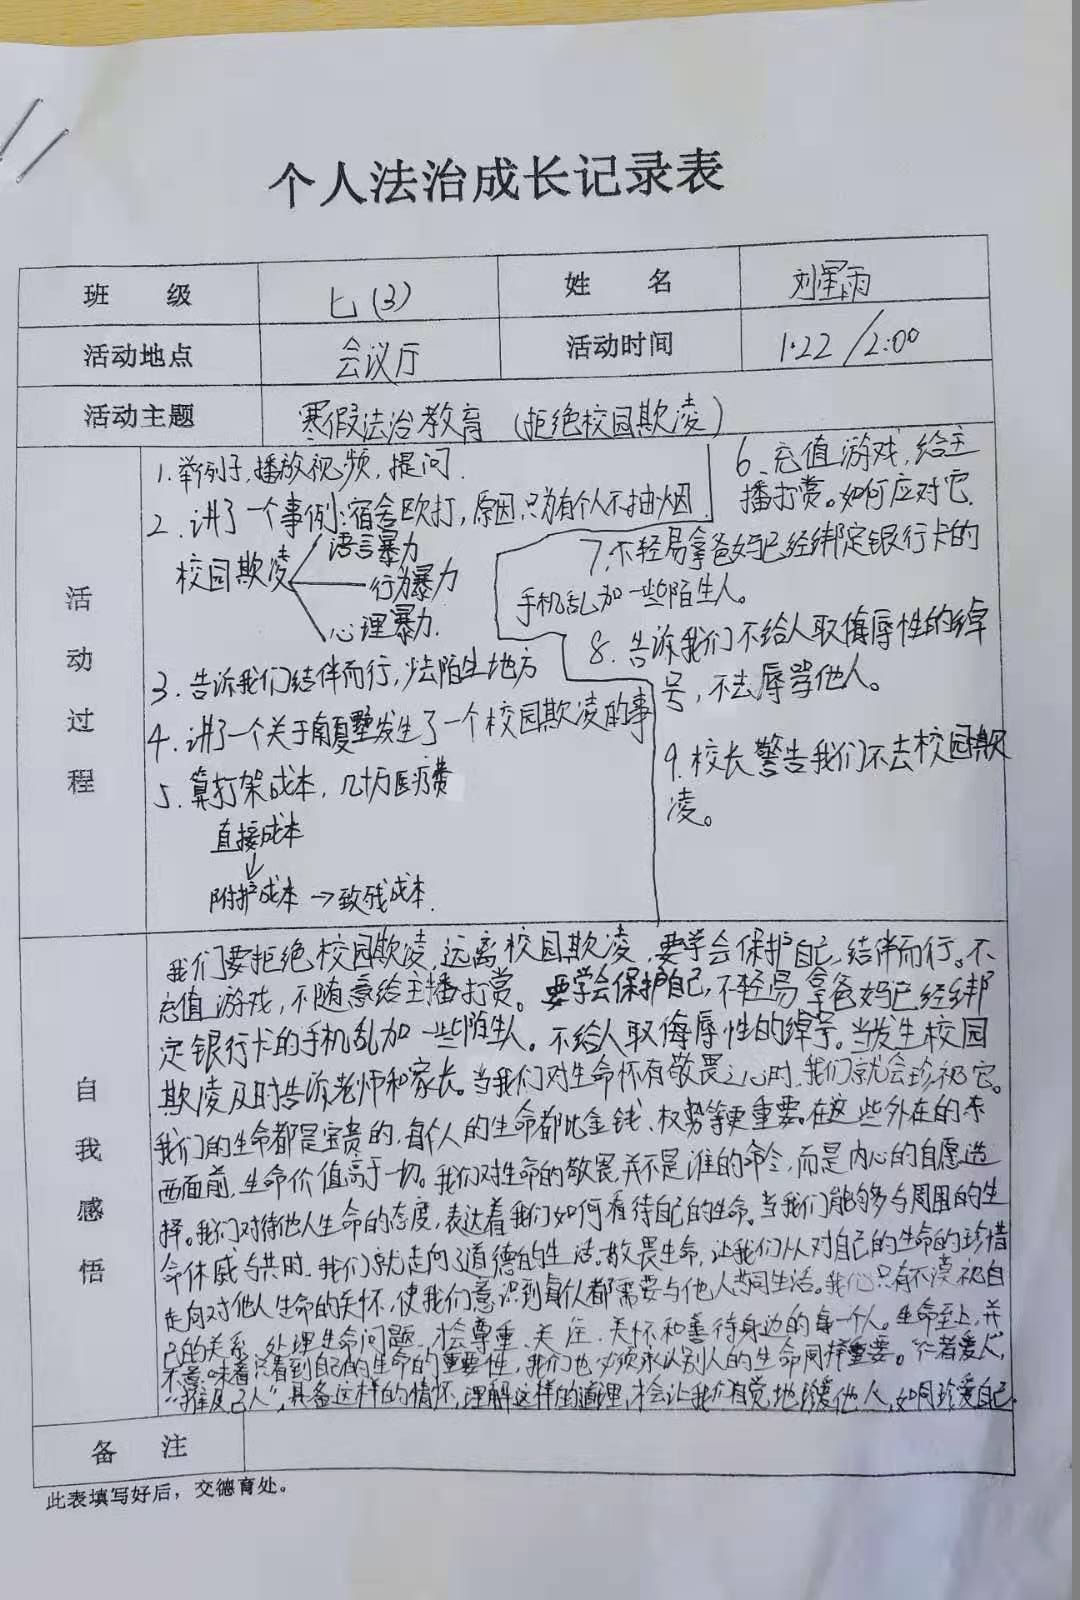 个人法治成长记录表
班 级 七(3) 姓 名 刘星雨
活动地点 会议厅 活动时间 1.22/2:00
活动主题 寒假法治教育(拒绝校园欺凌)
活动过程
1.举例子,播放视频,提问.
2.讲了一个事例:宿舍殴打,原因,只为有个人不抽烟
校园欺凌
语言暴力
行为暴力
心理暴力.
3.告诉我们结伴而行,少去陌生地方
4.讲了一个关于南夏墅发生了一个校园欺凌的事
5.算打架成本,几十万医疗费
直接成本
↓
附护成本→致残成本.
6.充值游戏,给主
播打赏。如何应对它.
7.不轻易拿爸妈已经绑定银行卡的
手机乱加一些陌生人。
8.告诉我们不给人取侮辱性的绰
号,不去辱骂他人。
9.校长警告我们不去校园欺
凌。
自我感悟
我们要拒绝校园欺凌,远离校园欺凌,要学会保护自己,结伴而行。不
充值游戏,不随意给主播打赏。要学会保护自己,不轻易拿爸妈已经绑
定银行卡的手机乱加一些陌生人。不给人取侮辱性的绰号。当发生校园
欺凌及时告诉老师和家长。当我们对生命怀有敬畏之心时,我们就会珍视它。
我们的生命都是宝贵的,每个人的生命都比金钱、权势等更重要。在这些外在的东
西面前,生命价值高于一切。我们对生命的敬畏,并不是谁的命令,而是内心的自愿选
择。我们对待他人生命的态度,表达着我们如何看待自己的生命。当我们能够与周围的生
命休戚与共时,我们就走向了道德的生活。敬畏生命,让我们从对自己的生命的珍惜
走向对他人生命的关怀,使我们意识到每个人都需要与他人共同生活。我们只有不漠视自
己的关系,处理生命问题,才会尊重、关注、关怀和善待身边的每一个人。生命至上,并
不意味着只看到自己的生命的重要性,我们也必须承认别人的生命同样重要。“仁者爱人”,
“推己及人”,具备这样的情怀,理解这样的道理,才会让我们自觉地珍爱他人,如同珍爱自己.
备 注
此表填写好后,交德育处。